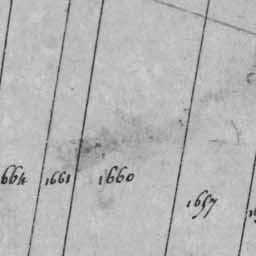 664 1661 1660
1657